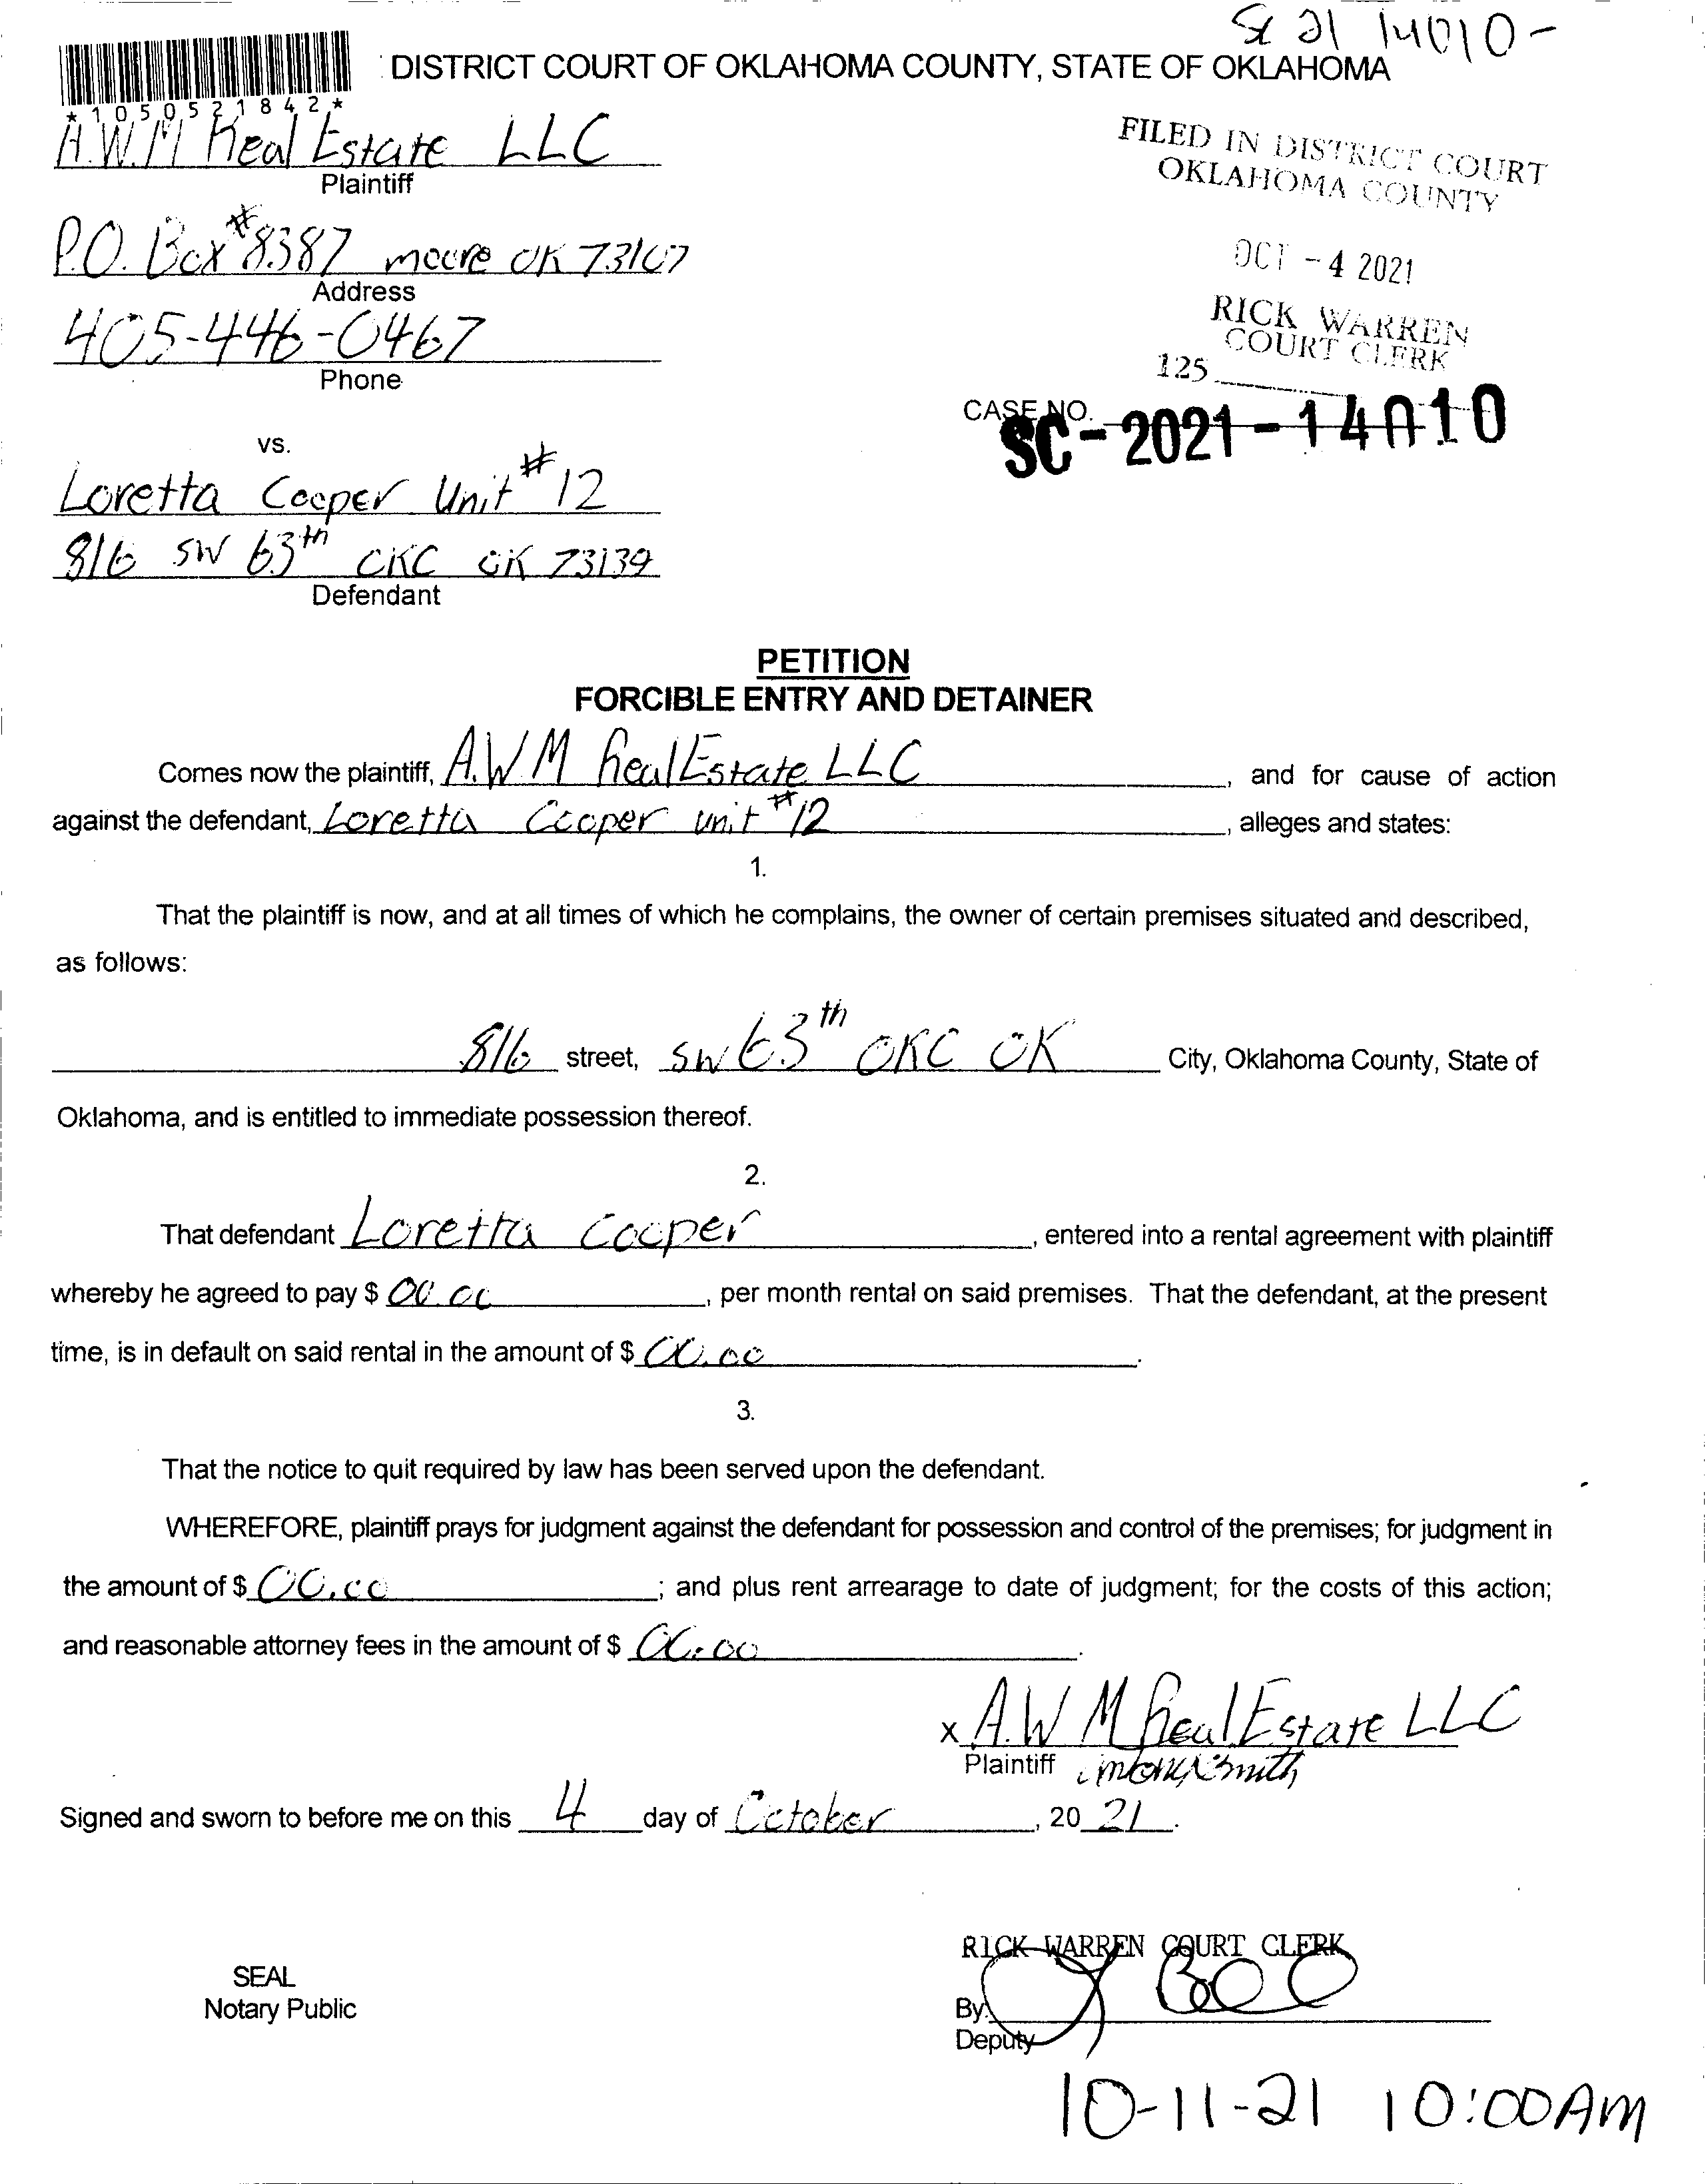 SC 21 14010-
DISTRICT COURT OF OKLAHOMA COUNTY, STATE OF OKLAHOMA
*1050521842*
A.W.M Real Estate LLC
Plaintiff
FILED IN DISTRICT COURT
OKLAHOMA COUNTY
P.O. Box #8387 moore OK 73167
Address
OCT - 4 2021
405-446-0467
Phone
RICK WARREN
COURT CLERK
125
CASE NO.
SC - 2021 - 14010
vs.
Loretta Cooper Unit #12
816 SW 63th OKC OK 73139
Defendant
PETITION
FORCIBLE ENTRY AND DETAINER
Comes now the plaintiff, A.W.M Real Estate LLC, and for cause of action
against the defendant, Loretta Cooper unit #12, alleges and states:
1.
That the plaintiff is now, and at all times of which he complains, the owner of certain premises situated and described,
as follows:
816 street, SW 63th OKC OK City, Oklahoma County, State of
Oklahoma, and is entitled to immediate possession thereof.
2.
That defendant Loretta Cooper, entered into a rental agreement with plaintiff
whereby he agreed to pay $ 00.00, per month rental on said premises. That the defendant, at the present
time, is in default on said rental in the amount of $ 00.00.
3.
That the notice to quit required by law has been served upon the defendant.
WHEREFORE, plaintiff prays for judgment against the defendant for possession and control of the premises; for judgment in
the amount of $ 00.00; and plus rent arrearage to date of judgment; for the costs of this action;
and reasonable attorney fees in the amount of $ 00.00.
x A.W M Real Estate LLC
Plaintiff Smith
Signed and sworn to before me on this 4 day of October, 20 21.
RICK WARREN COURT CLERK
SEAL
Notary Public
By:
Deputy
10-11-21 10:00AM